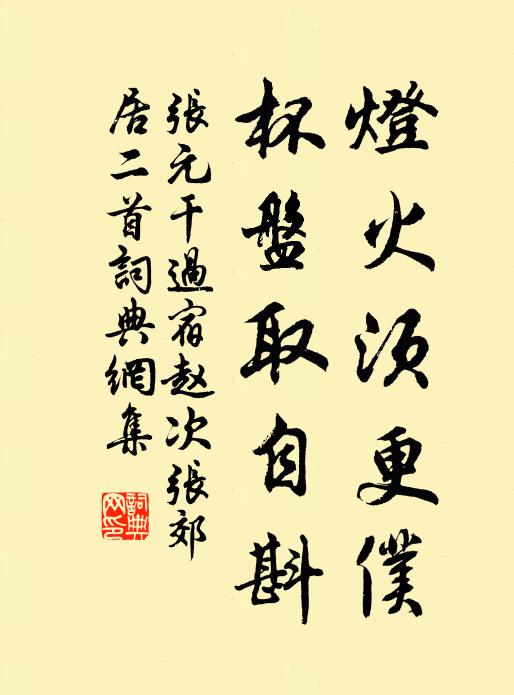 燈火須更僕
杯盤取自斟
張元干過宿赵次張郊
居二首詞典網集
詞典网印